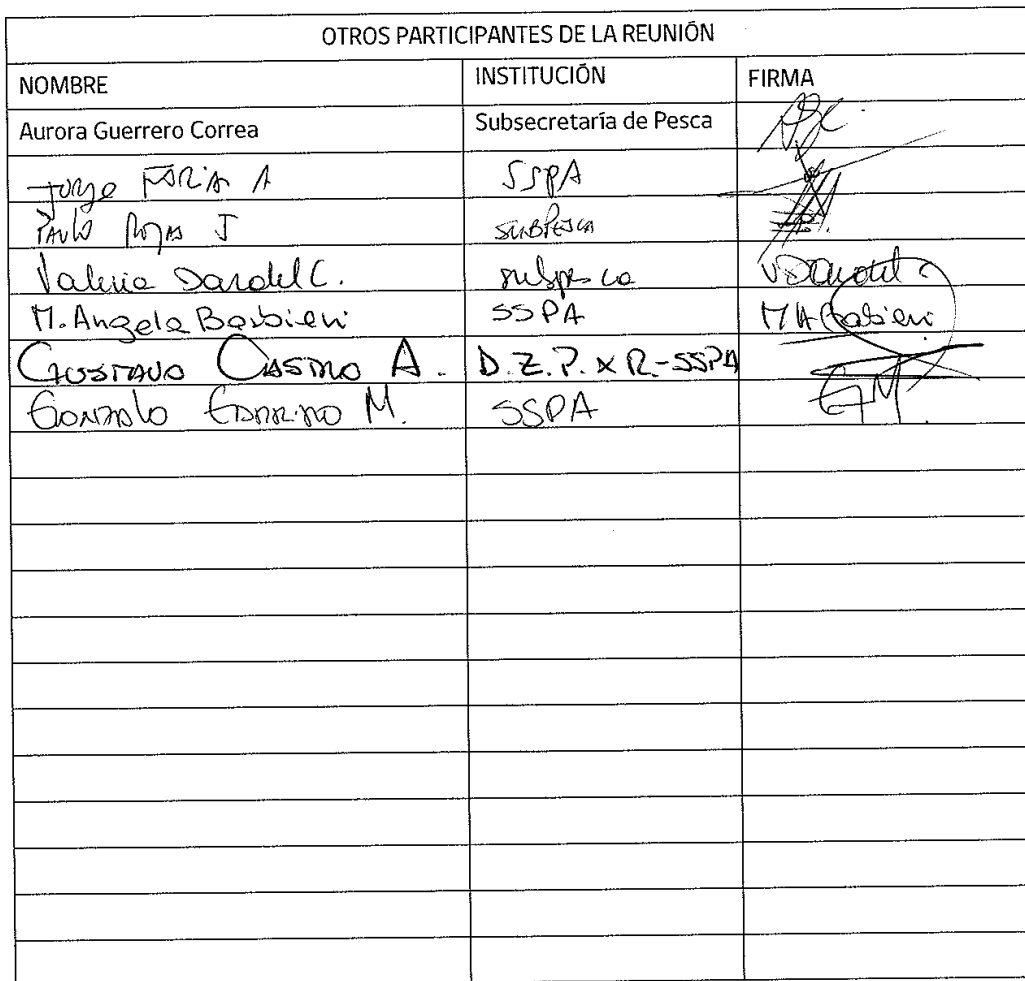 OTROS PARTICIPANTES DE LA REUNIÓN
NOMBRE INSTITUCIÓN FIRMA
Aurora Guerrero Correa Subsecretaría de Pesca
Jorge Farias A SSPA
Paulo Rojas J SUBPESCA
Valeria Dardel C. subpesca
M. Angela Barbieri SSPA MABarbieri
GUSTAVO CASTRO A. D.Z.P. X R.-SSPA
Gonzalo M. SSPA GM